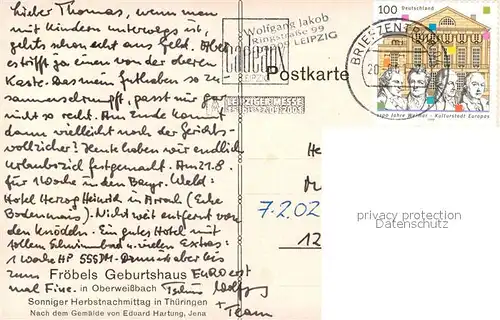 Lieber Thomas, wenn man
mit Kindern unterwegs ist,
geht's schon echt ans Geld. Aber
es trifft ja einen von der oberen
Kaste. Das mein Guthaben so zu-
sammenschrumpft, passt mir gar
nicht so recht. Am Ende kommt
dann vielleicht noch der Gerichts-
vollzieher? Heute haben wir endlich
Urlaubsziel festgemacht. Am 21.8.
für 1 Woche in den Bayr. Wald:
Hotel Herzog Heinrich in Arrach (Ecke
Bodenmais). Nicht weit entfernt von
den Knödeln. Ein gutes Hotel mit
tollem Schwimmbad u. vielen Extras:
1 Woche HP 555 DM. Danach aber bis
zum EURO erst
mal Fine. Tschüs Wolfg.
+ Team
Fröbels Geburtshaus
in Oberweißbach
Sonniger Herbstnachmittag in Thüringen
Nach dem Gemälde von Eduard Hartung, Jena
Wolfgang Jakob
Ringstraße 99
LEIPZIG
LEIPZIG
LEIPZIGER MESSE
Postkarte
BRIEFZENTRUM
20
100 Deutschland
1100 Jahre Weimar - Kulturstadt Europas
7.2.02
12
privacy protection
DatenSchutz